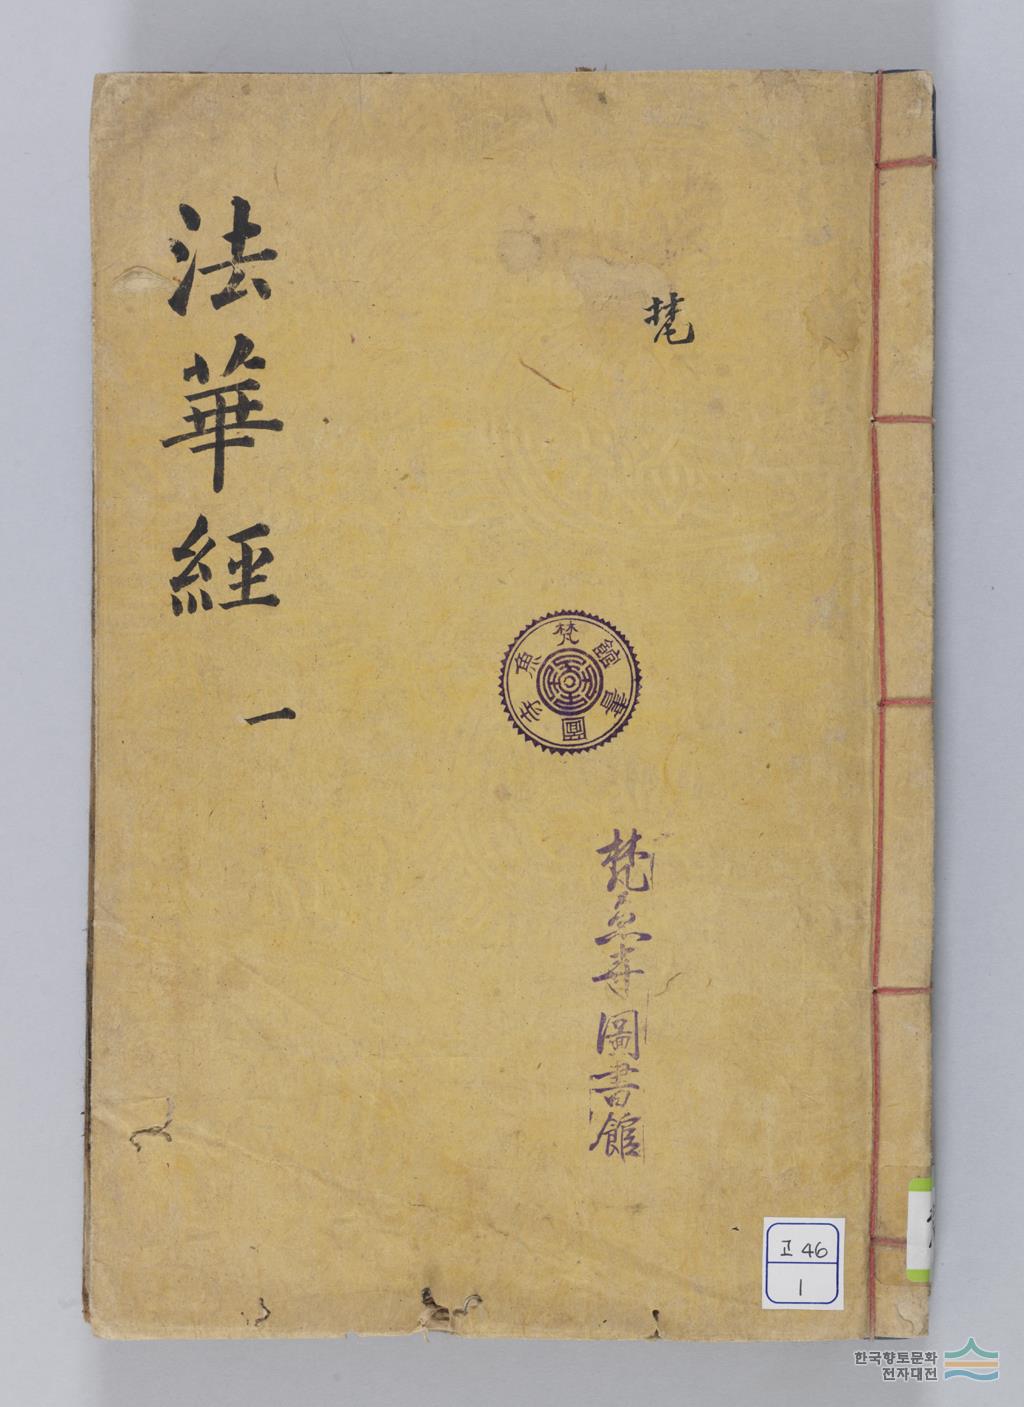 法華經
一
梵
梵魚寺圖書館
梵魚寺圖書館
고 46
1
한국향토문화
전자대전